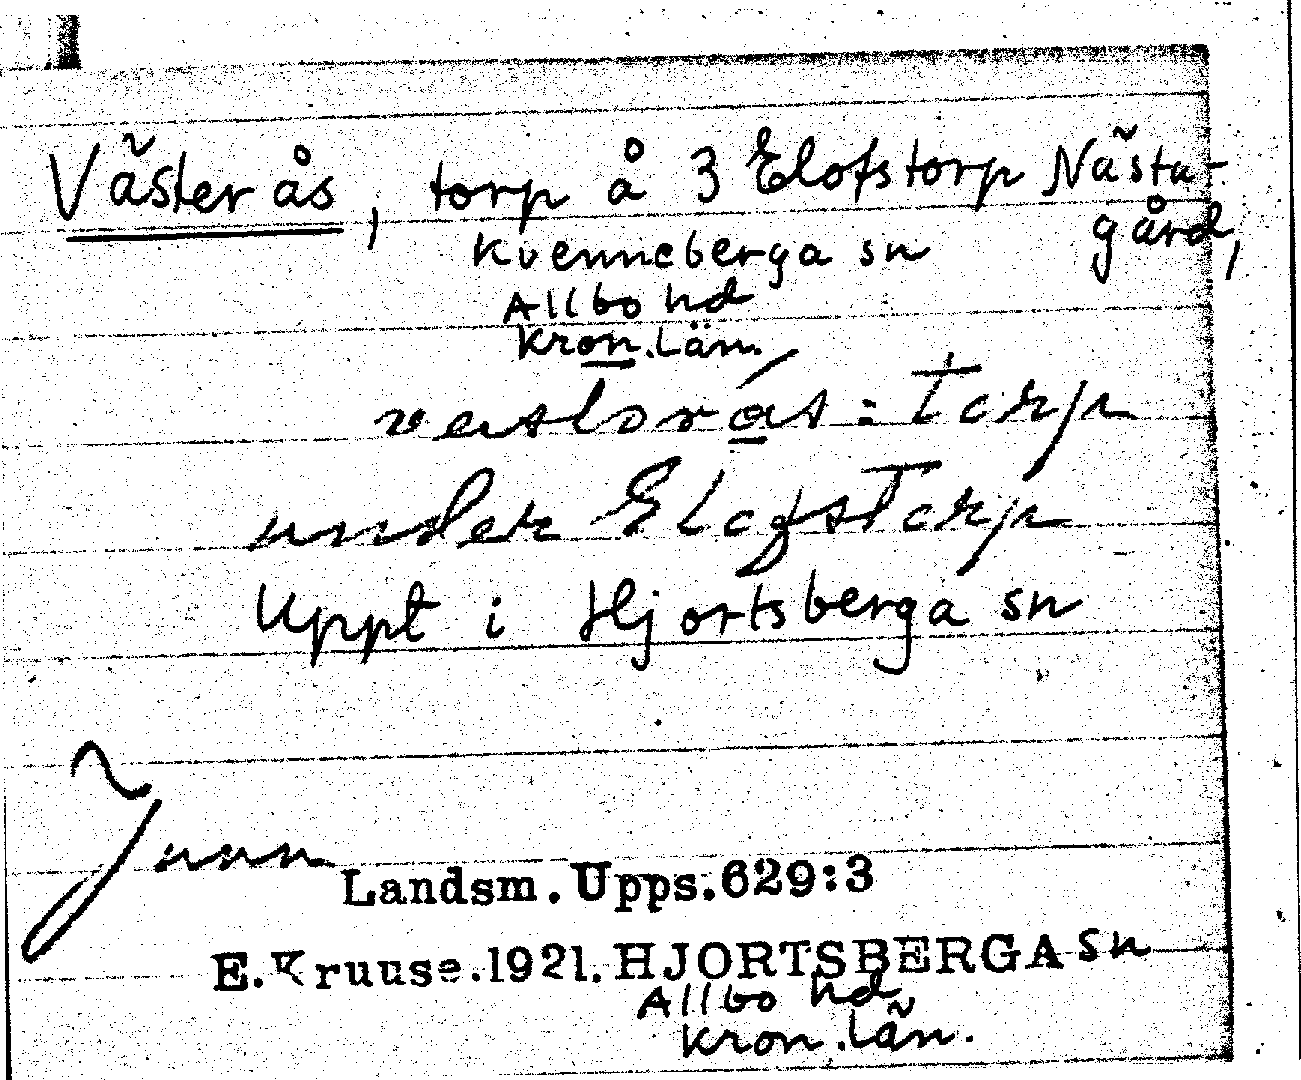 Västerås, torp å 3 Elofstorp Nästa-
gård,
Kvenneberga sn
Allbo hd
Kron. län.
torp
under Elofstorp
Uppt i Hjortsberga sn
Landsm. Upps. 629:3
E. Kruuse. 1921. HJORTSBERGA sn
Allbo hd
Kron. län.